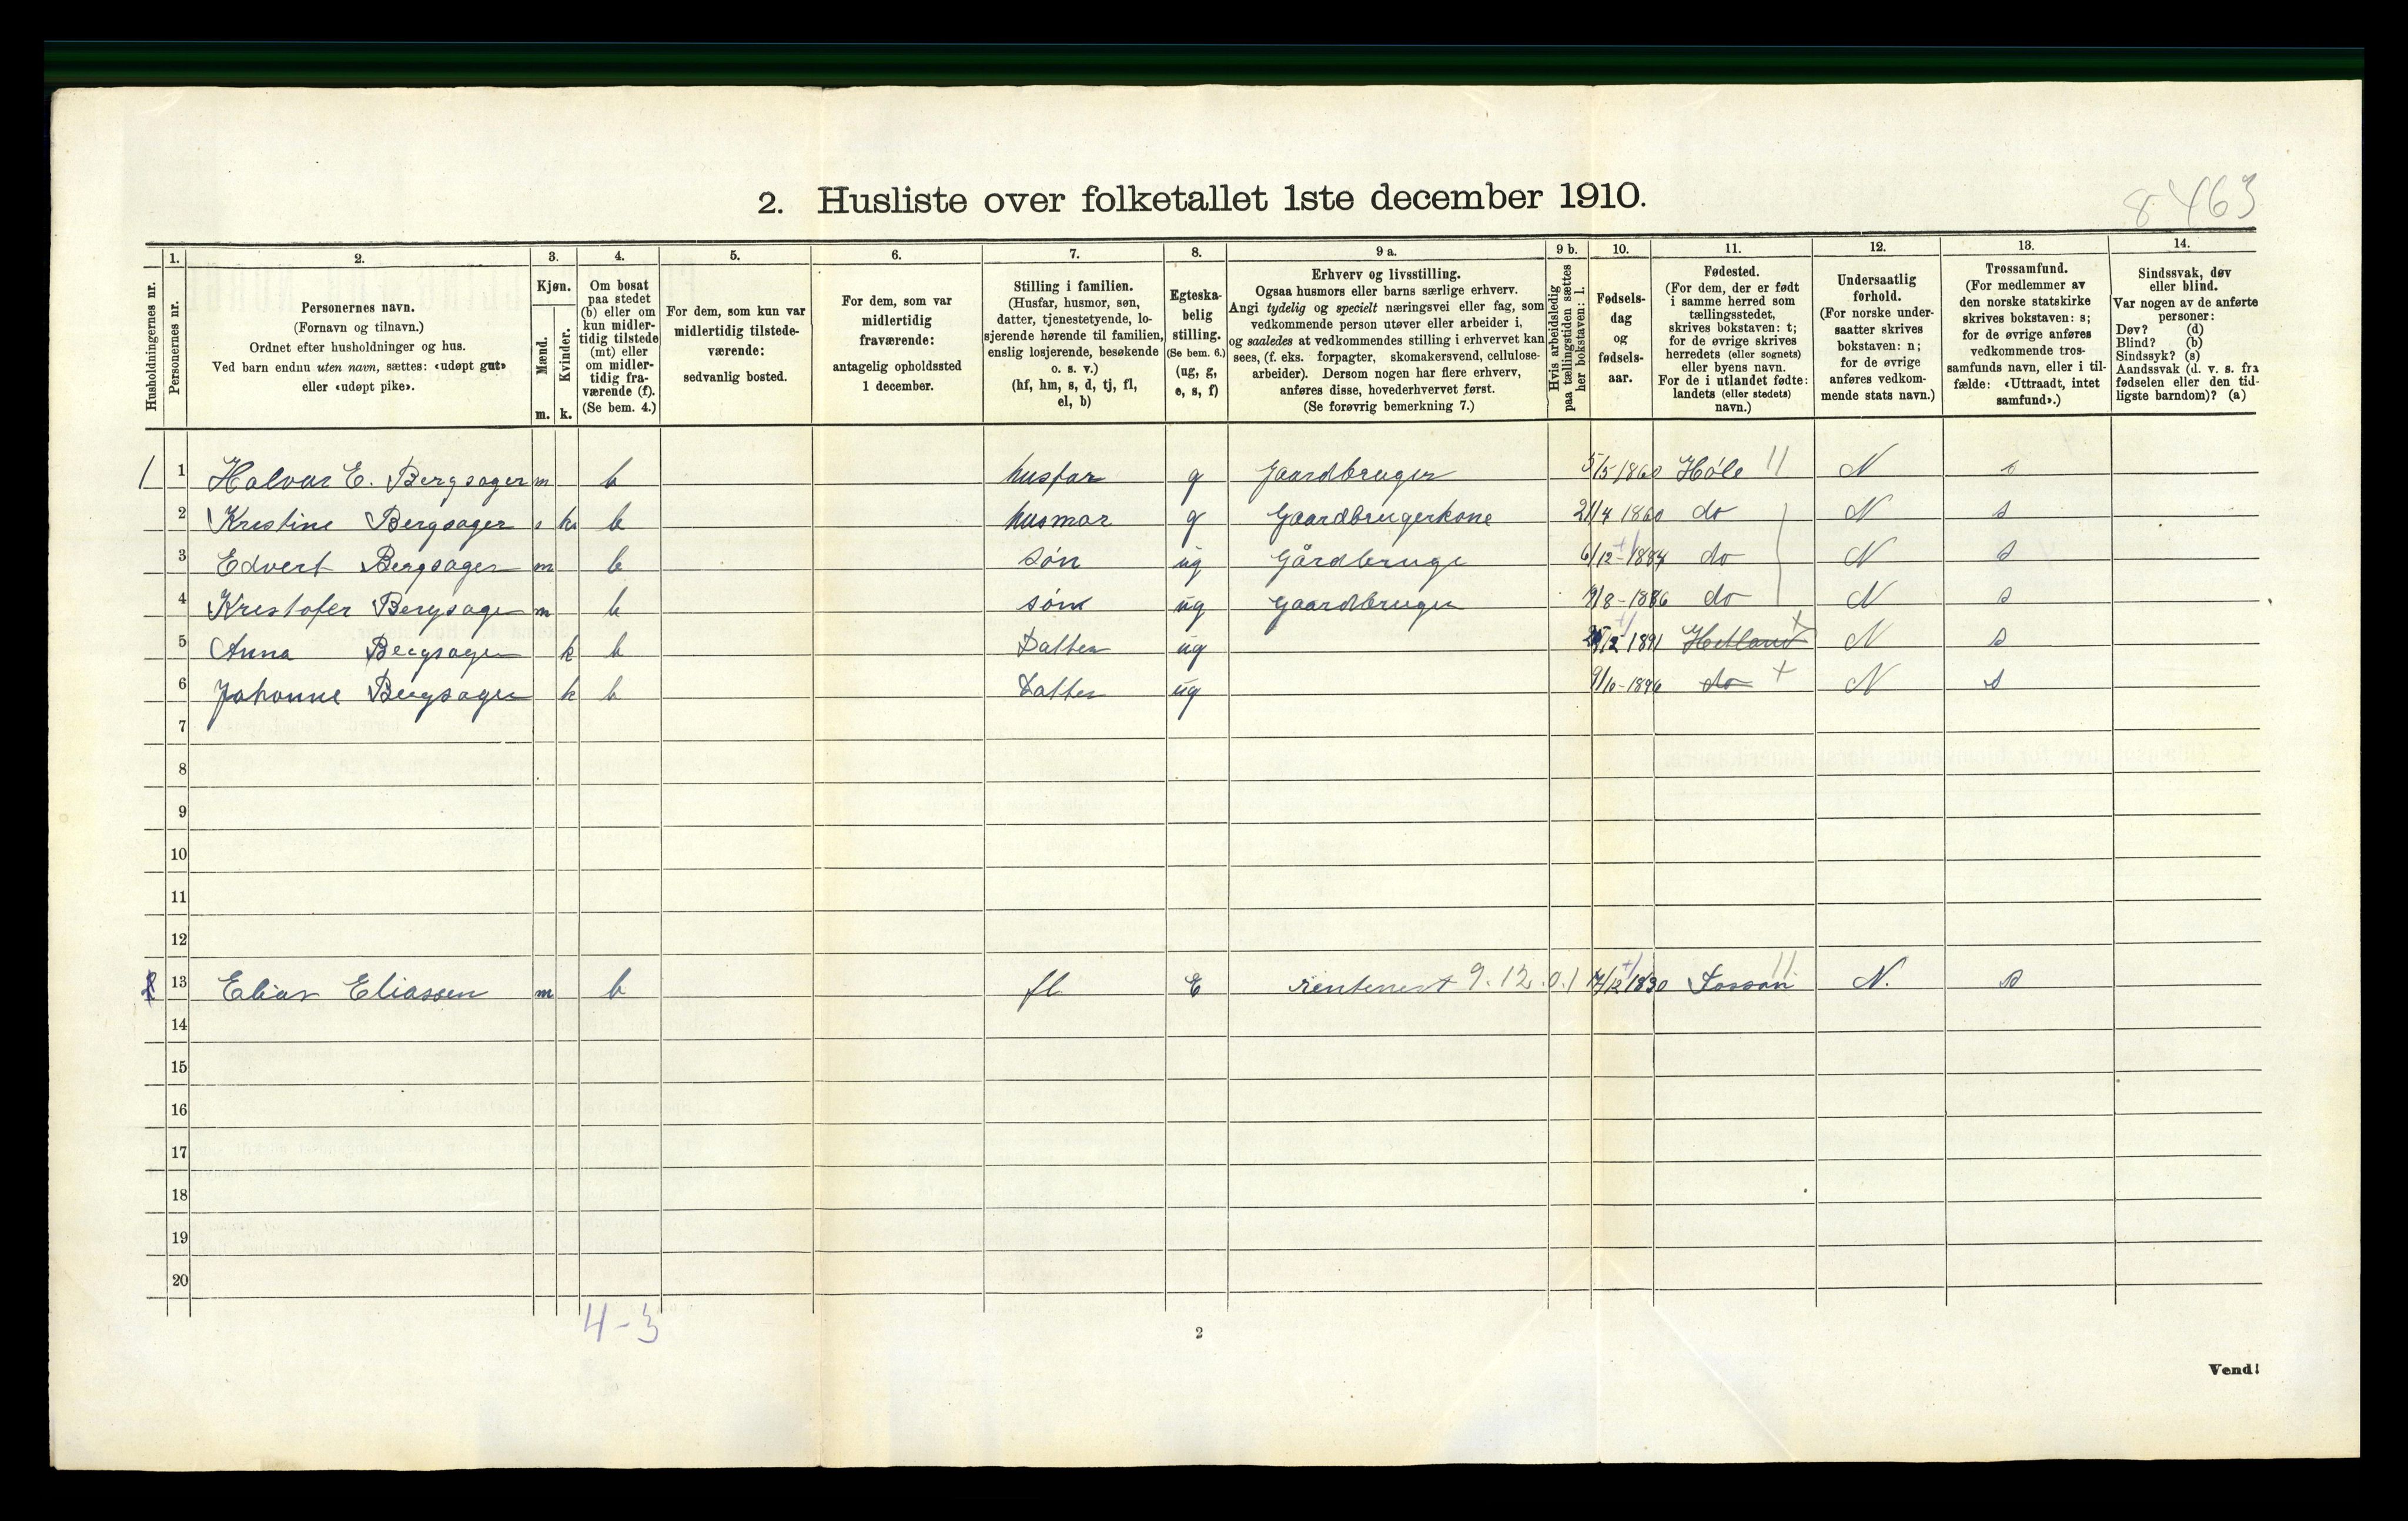 2. Husliste over folketallet 1ste december 1910.
8463
Husholdningernes nr.
1.
Personernes nr.
2.
Personernes navn.
(Fornavn og tilnavn.)
Ordnet efter husholdninger og hus.
Ved barn endnu uten navn, sættes: «udøpt gut»
eller «udøpt pike».
3.
Kjøn.
Mænd.
Kvinder.
m. k.
4.
Om bosat
paa stedet
(b) eller om
kun midler-
tidig tilstede
(mt) eller
om midler-
tidig fra-
værende (f).
(Se bem. 4.)
5.
For dem, som kun var
midlertidig tilstede-
værende:
sedvanlig bosted.
6.
For dem, som var
midlertidig
fraværende:
antagelig opholdssted
1 december.
7.
Stilling i familien.
(Husfar, husmor, søn,
datter, tjenestetyende, lo-
sjerende hørende til familien,
enslig losjerende, besøkende
o. s. v.)
(hf, hm, s, d, tj, fl,
el, b)
8.
Egteska-
belig
stilling.
(Se bem. 6.)
(ug, g,
e, s, f)
9 a.
Erhverv og livsstilling.
Ogsaa husmors eller barns særlige erhverv.
Angi tydelig og specielt næringsvei eller fag, som
vedkommende person utøver eller arbeider i,
og saaledes at vedkommendes stilling i erhvervet kan
sees, (f. eks. forpagter, skomakersvend, cellulose-
arbeider). Dersom nogen har flere erhverv,
anføres disse, hovederhvervet først.
(Se forøvrig bemerkning 7.)
9 b.
Hvis arbeidsledig
paa tællingstiden sættes
her bokstaven: l.
10.
Fødsels-
dag
og
fødsels-
aar.
11.
Fødested.
(For dem, der er født
i samme herred som
tællingsstedet,
skrives bokstaven: t;
for de øvrige skrives
herredets (eller sognets)
eller byens navn.
For de i utlandet fødte:
landets (eller stedets)
navn.)
12.
Undersaatlig
forhold.
(For norske under-
saatter skrives
bokstaven: n;
for de øvrige
anføres vedkom-
mende stats navn.)
13.
Trossamfund.
(For medlemmer av
den norske statskirke
skrives bokstaven: s;
for de øvrige anføres
vedkommende tros-
samfunds navn, eller i til-
fælde: «Uttraadt, intet
samfund».)
14.
Sindssvak, døv
eller blind.
Var nogen av de anførte
personer:
Døv? (d)
Blind? (b)
Sindssyk? (s)
Aandssvak (d. v. s. fra
fødselen eller den tid-
ligste barndom)? (a)
1 1 Halvar E. Bergsager m b husfar g Gaardbruger 5/5 1860 Høle // N s
2 Kristine Bergsager k b husmor g Gaardbrugerkone 21/4 1860 do N s
3 Edvert Bergsager m b søn ug Gårdbruge 6/12-1884 do N s
4 Kristofer Bergsage m b søn ug Gaardbruger 9/8-1886 do N s
5 Anna Bergsager k b Datter ug /12 1891 Hetland + N s
6 Johanne Bergsager k b Datter ug 9/6-1896 do + N s
7
8
9
10
11
12
13 Elias Eliassen m b fl E rentenest 9.12.01 /12 1830 Fossan // N. s
14
15
16
17
18
19
20
4-3
2
Vend!